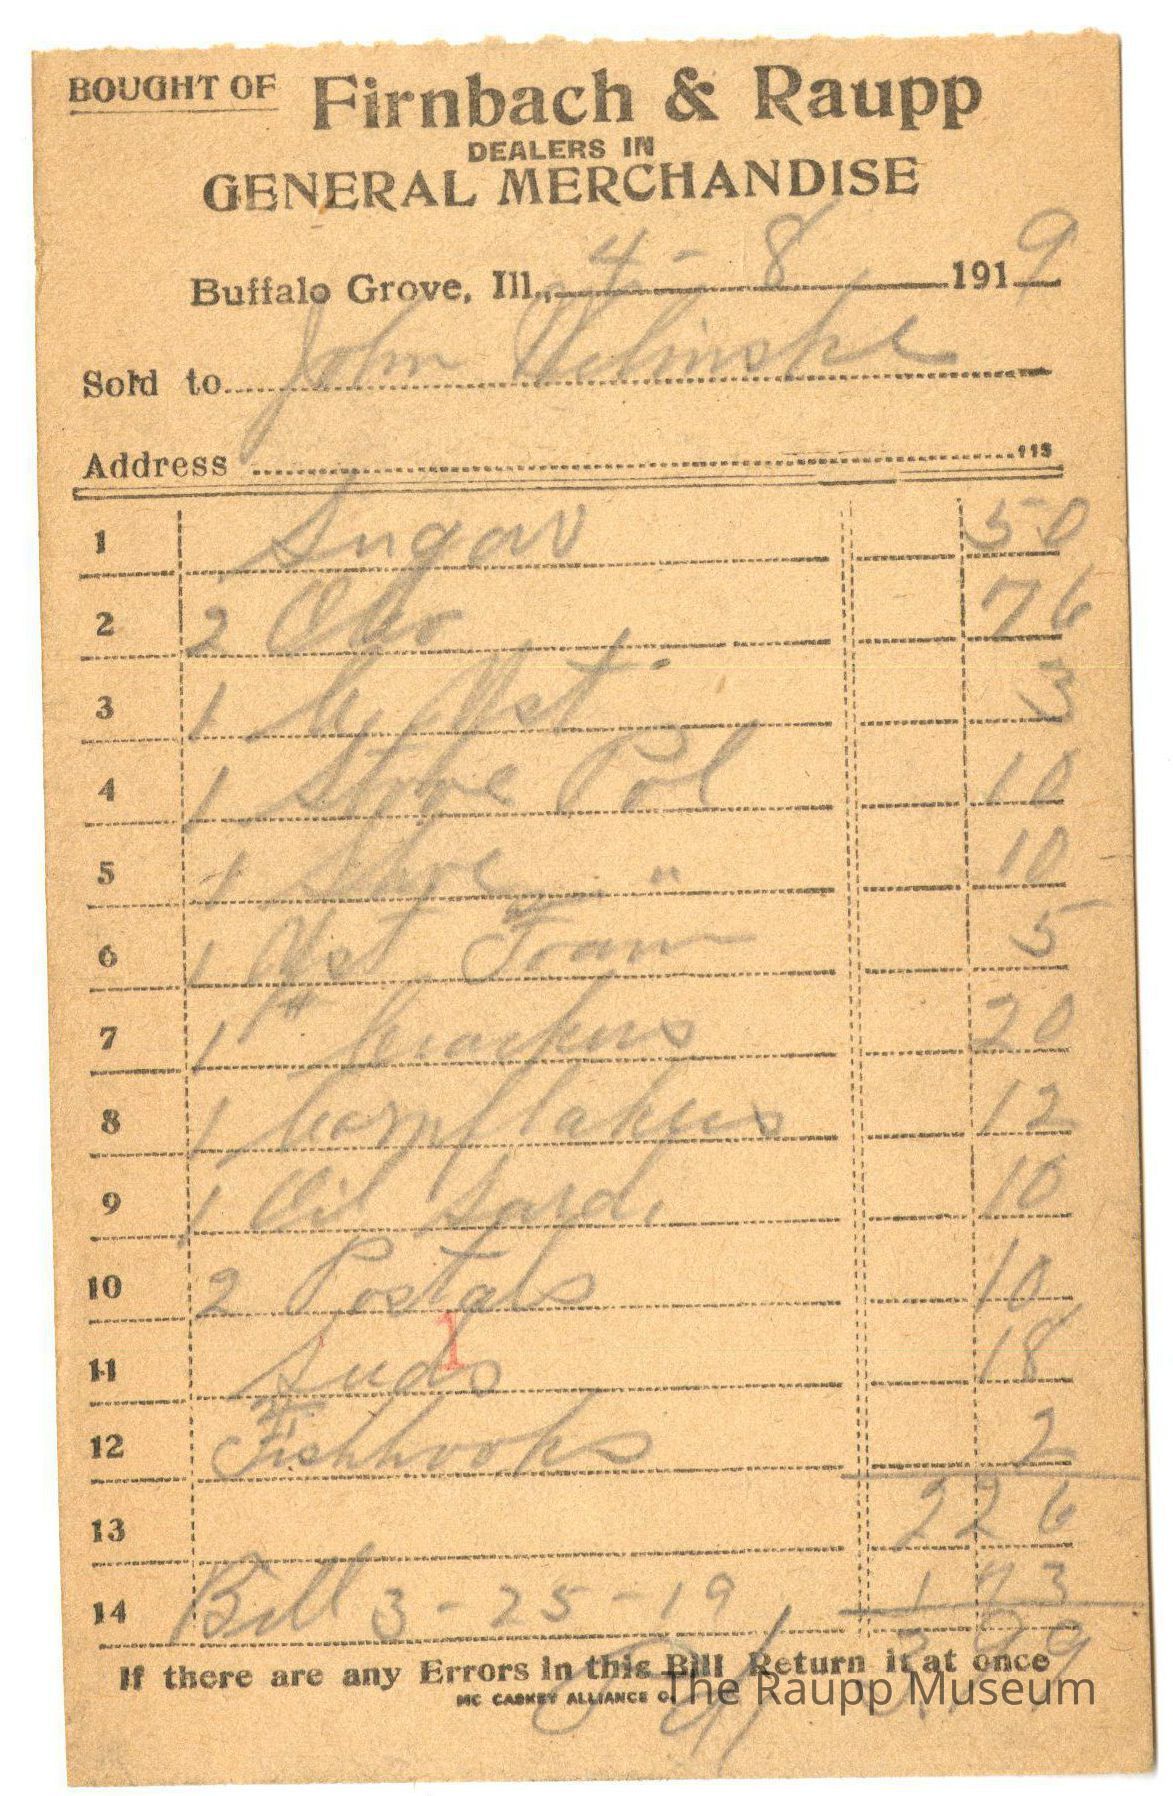 BOUGHT OF Firnbach & Raupp
DEALERS IN
GENERAL MERCHANDISE
Buffalo Grove, Ill., 4-8 1919
Sold to John
Address
1 Sugar 50
2 2 76
3 1 Yst. 3
4 1 Stove Pol 10
5 1 " 10
6 1 Yst Foam 5
7 1# Crackers 20
8 1 Cornflakes 12
9 1 Oil Sard. 10
10 2 Postals 10
11 Suds 18
1
12 Fishhooks 2
13 2 26
14 Bill 3-25-19 1 73
3 99
If there are any Errors in this Bill Return it at once
MC CASKEY ALLIANCE O.
The Raupp Museum